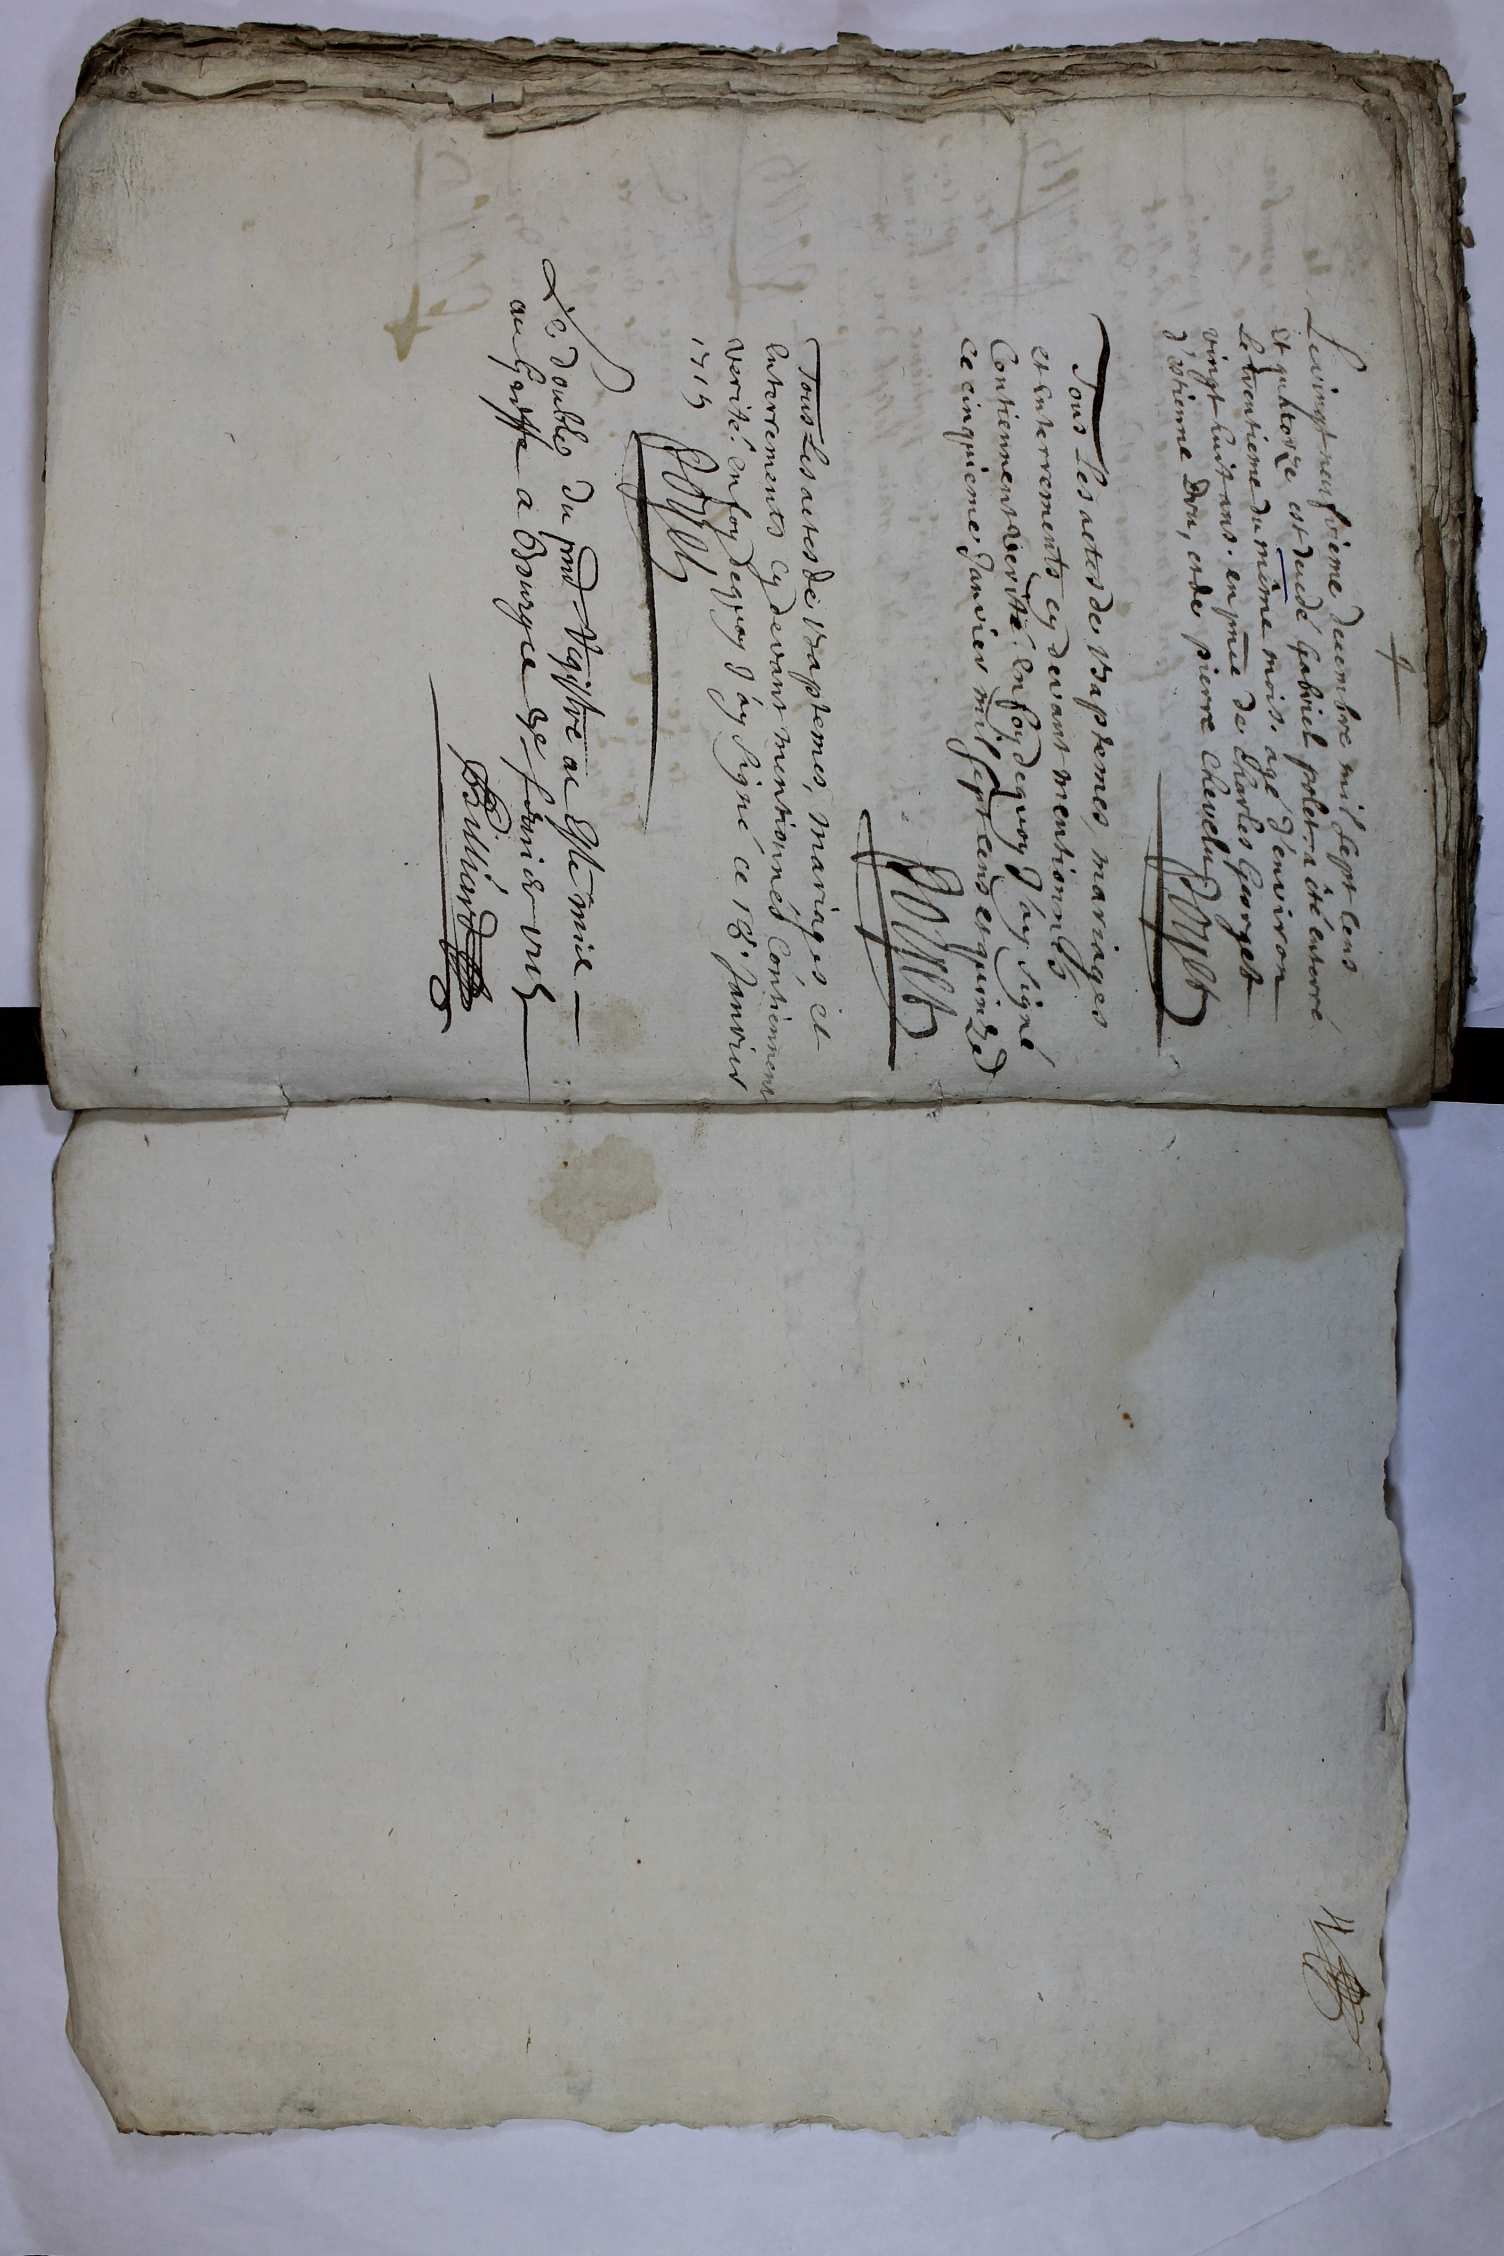 Le vingt neufvieme decembre mil sept cens
et quatorze est decedé Gabriel polet a été enterré
Le trentieme du même mois. agé d'environ
vingt huit ans. en pnce de Charles Georget
d'estienne Dru, et de pierre chevelu
Tous Les actes de Baptemes, mariages
et enterrements cy devant mentionnés
Contiennent verité. en foy dequoy J'ay signé
ce cinquieme Janvier mil sept cens et quinze
Tous Les actes de Baptemes, mariages et
Enterrements cy devant mentionnés Contiennent
verité. en foy dequoy J'ay signé ce 18. Janvier
1715
Le double du pnt Registre a esté mis
au Greffe a Bourges
4